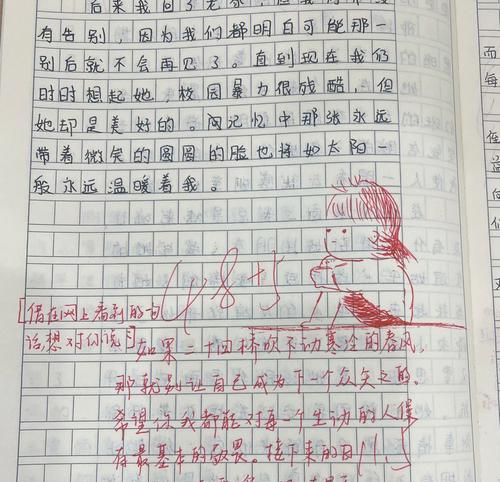 后来我回了老家，
有告别，因为我们都明白可能那一
别后就不会再见了。直到现在我仍
时时想起她，校园暴力很残酷，但
她却是美好的。而记忆中那张永远
带着微笑的圆圆的脸也将如太阳一
般永远温暖着我。
48+5
[借在网上看到的一句
话想对你说]如果二十四桥吹不动寒冷的春风，
那就别让自己成为下一个众矢之的。
希望你我都能对每一个生动的人保
有最基本的敬畏。接下来的日
而
每